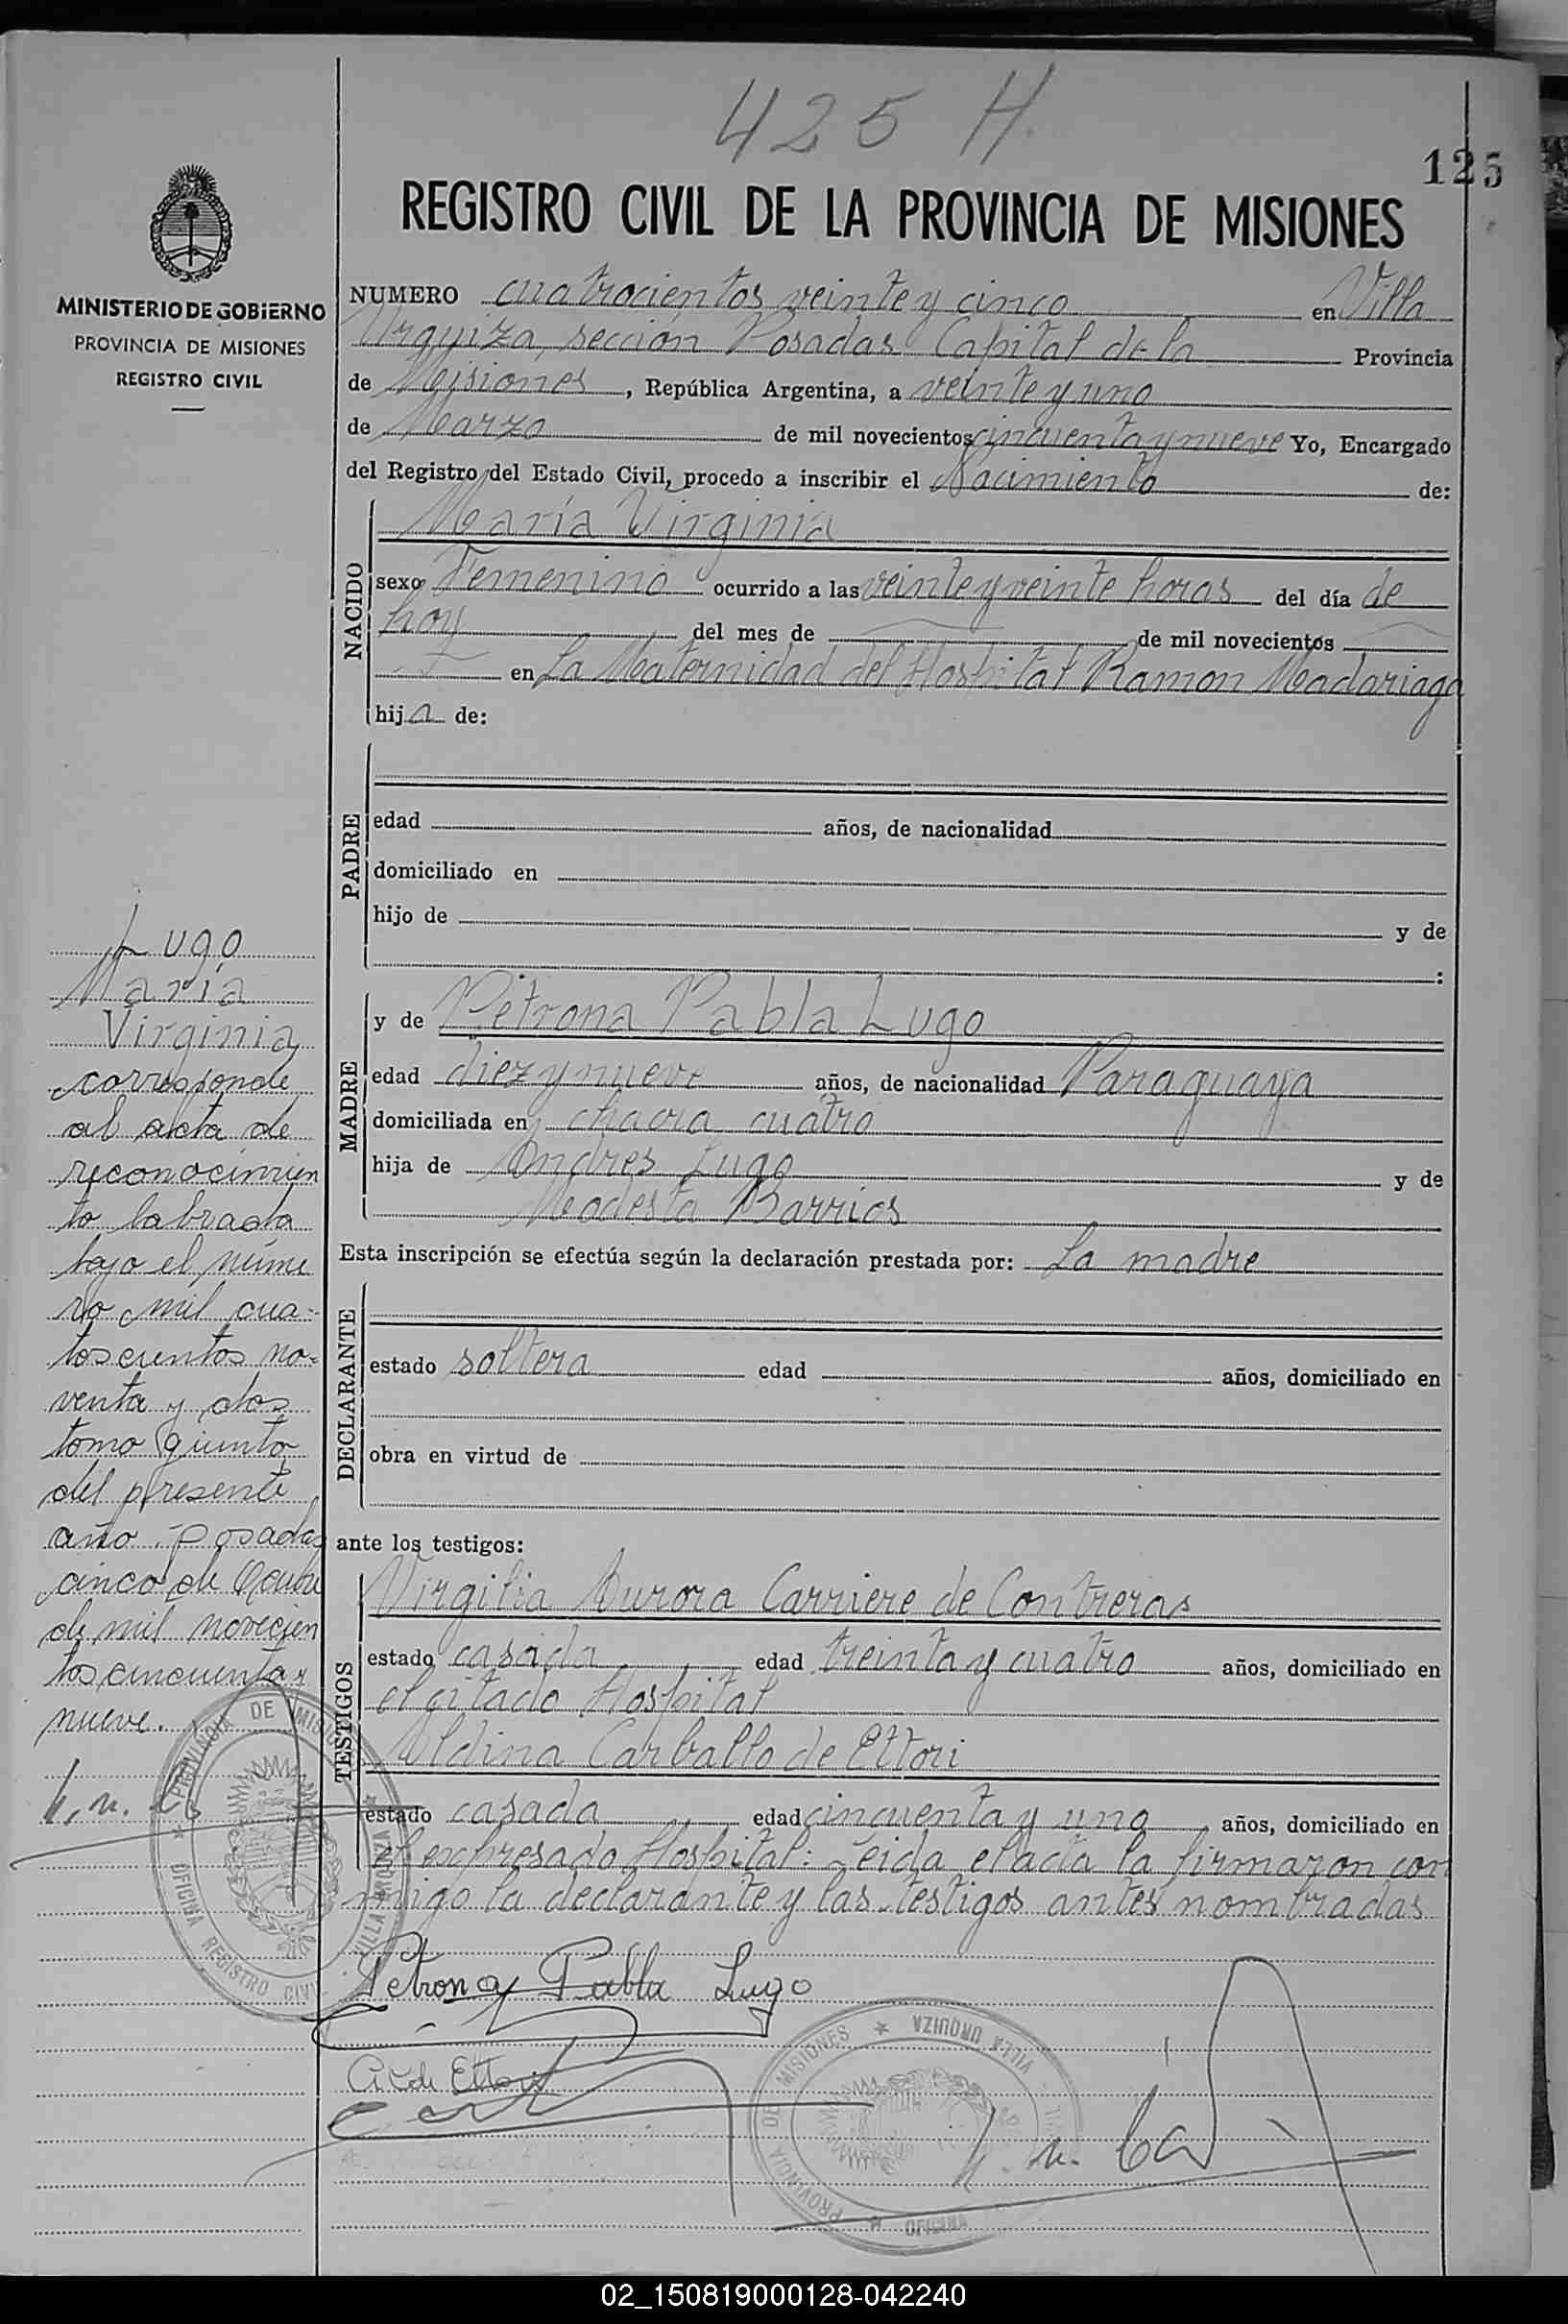 425 H.
125
REGISTRO CIVIL DE LA PROVINCIA DE MISIONES
MINISTERIO DE GOBIERNO
PROVINCIA DE MISIONES
REGISTRO CIVIL
NUMERO cuatrocientos veinte y cinco en Villa
Urquiza, sección Posadas Capital de la Provincia
de Misiones, República Argentina, a veinte y uno
de Marzo de mil novecientos cincuenta y nueve Yo, Encargado
del Registro del Estado Civil, procedo a inscribir el Nacimiento de:
NACIDO
María Virginia
sexo Femenino ocurrido a las veinte y veinte horas del día de
hoy del mes de de mil novecientos
en La Maternidad del Hospital Ramon Madariaga
hija de:
PADRE
edad años, de nacionalidad
domiciliado en
hijo de y de
:
MADRE
y de Petrona Pabla Lugo
edad diez y nueve años, de nacionalidad Paraguaya
domiciliada en chacra cuatro
hija de Andres Lugo y de
Modesta Barrios
Esta inscripción se efectúa según la declaración prestada por: La madre
DECLARANTE
estado soltera edad años, domiciliado en
obra en virtud de
ante los testigos:
TESTIGOS
Virgilia Aurora Carriere de Contreras
estado casada edad treinta y cuatro años, domiciliado en
el citado Hospital
Aldina Carballo de Ettori
estado casada edad cincuenta y uno años, domiciliado en
el expresado Hospital: Leida el acta la firmaron con
migo la declarante y las testigos antes nombradas
Petrona Pabla Lugo
C. de Ettori
Lugo
María
Virginia
corresponde
al acta de
reconocimien
to labrada
bajo el núme
ro mil cua-
toscientos no-
venta y dos
tomo quinto
del presente
año. Posadas
cinco de Octubre
de mil novecien
tos cincuenta y
nueve.
PROVINCIA DE MISIONES
OFICINA REGISTRO CIVIL VILLA URQUIZA
PROVINCIA DE MISIONES
VILLA URQUIZA
OFICINA
02_150819000128-042240